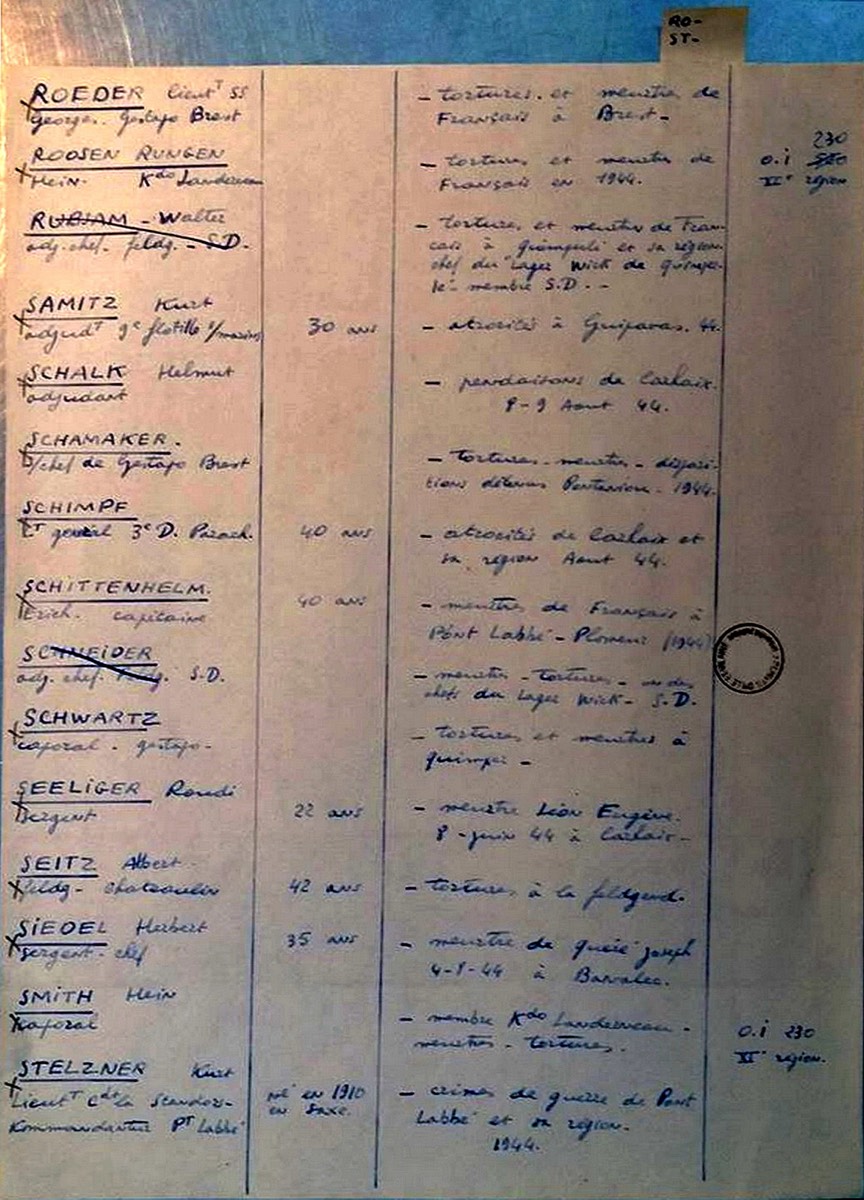 RO-
ST-
ROEDER lieutT SS
georges. Gestapo Brest
- tortures. et meurtres de
Français à Brest -
ROOSEN RUNGEN
Hein. Kdo Landerneau
- tortures et meurtres de
Français en 1944.
230
O.i
XIe région
RUBJAM - Walter
adj. chef. feldg. - S.D.
- tortures et meurtres de Fran-
çais à Quimperlé et sa région
chef du Lager Wick de Quimper-
lé - membre S.D. -
SAMITZ Kurt
adjudT 9e flotille s/marins
30 ans
- atrocités à Guipavas. 44.
SCHALK Helmut
adjudant
- pendaisons de Carhaix.
8-9 Aout 44.
SCHAMAKER.
S/chef de Gestapo Brest
- tortures - meurtres - dispari-
tions détenus Pontaniou - 1944.
SCHIMPF
LT général 3e D. Parach.
40 ans
- atrocités de Carhaix et
sa région Aout 44.
SCHITTENHELM.
Erich. capitaine
40 ans
- meurtres de Français à
Pont Labbé - Plomeur (1944)
SCHNEIDER
adj. chef. Feldg. S.D.
- meurtres - tortures - un des
chefs du Lager Wick - S.D.
SCHWARTZ
caporal. gestapo -
- tortures et meurtres à
Quimper -
SEELIGER Roudi
Sergent
22 ans
- meurtre Léon Eugène.
8 - juin 44 à Carhaix -
SEITZ Albert
feldg - chateaulin
42 ans
- tortures à la feldgend.
SIEDEL Herbert
sergent - chef
35 ans
- meurtre de Queré joseph
4-8-44 à Banalec.
SMITH Hein
caporal
- membre Kdo Landerneau -
meurtres - tortures.
O.i 230
XIe région.
STELZNER Kurt
LieutT Cdt la Standor-
Kommandantur PT Labbé
né en 1910
en Saxe.
- crimes de guerre de Pont
Labbé et sa région.
1944.